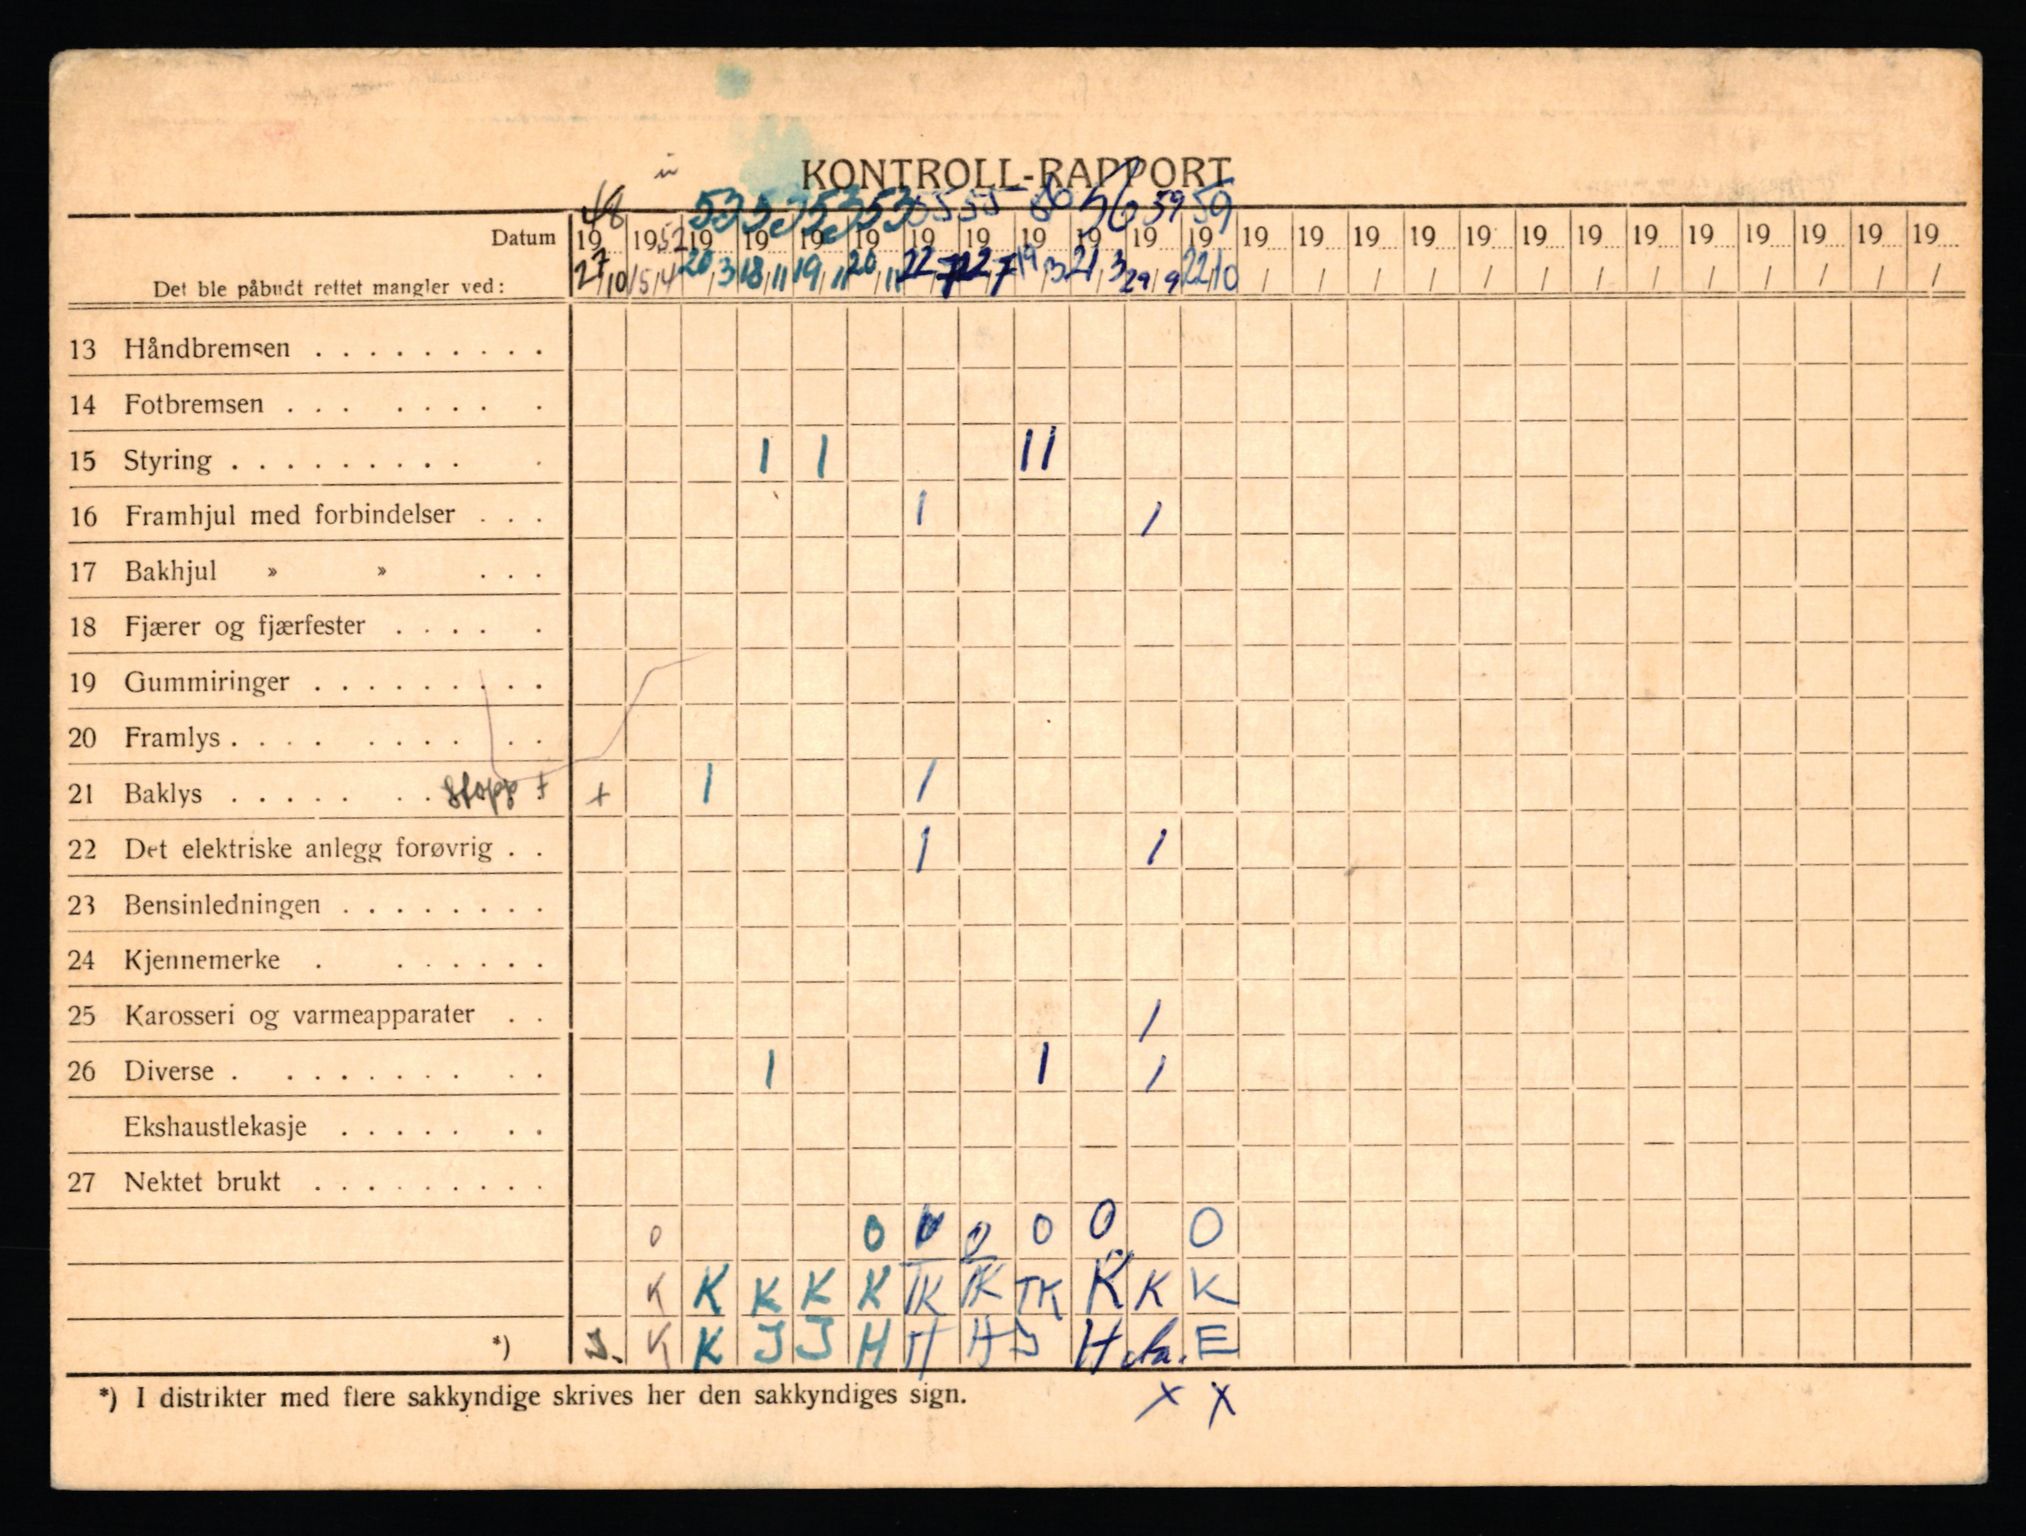 KONTROLL-RAPPORT
48 53 53 53 53 55 55 56 59 59
Datum 19 1952 19 19 19 19 19 19 19 19 19 19 19 19 19 19 19 19 19 19 19 19 19 19 19
Det ble påbudt rettet mangler ved: 27/10 15/4 20/3 18/11 19/11 20/11 22/7 22/7 19/3 21/3 29/9 22/10 / / / / / / / / / / / / /
13 Håndbremsen . . . . . . . . .
14 Fotbremsen . . . . . . . .
15 Styring . . . . . . . . . . 1 1 11
16 Framhjul med forbindelser . . . 1 1
17 Bakhjul » » . . .
18 Fjærer og fjærfester . . . . .
19 Gummiringer . . . . . . . . .
20 Framlys . . . . . . . . . .
21 Baklys . . . . . . . Stopp + + 1 1
22 Det elektriske anlegg forøvrig . . 1 1
23 Bensinledningen . . . . . . . .
24 Kjennemerke . . . . . . .
25 Karosseri og varmeapparater . . 1
26 Diverse . . . . . . . . . . 1 1 1
Ekshaustlekasje . . . . . . .
27 Nektet brukt . . . . . . . . .
0 0 0 0 0 0
K K K K K TK TK TK K K K
*) J. K K J J H H H J H E
*) I distrikter med flere sakkyndige skrives her den sakkyndiges sign. x x